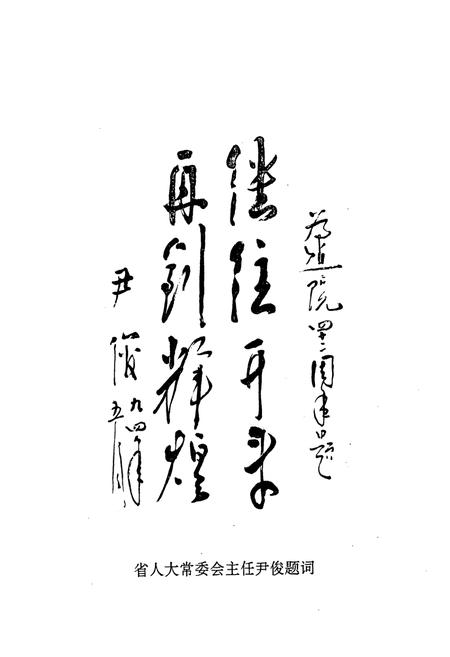 为建院四十二周年题
继往开来
再创辉煌
尹俊
九四年
五月
省人大常委会主任尹俊题词